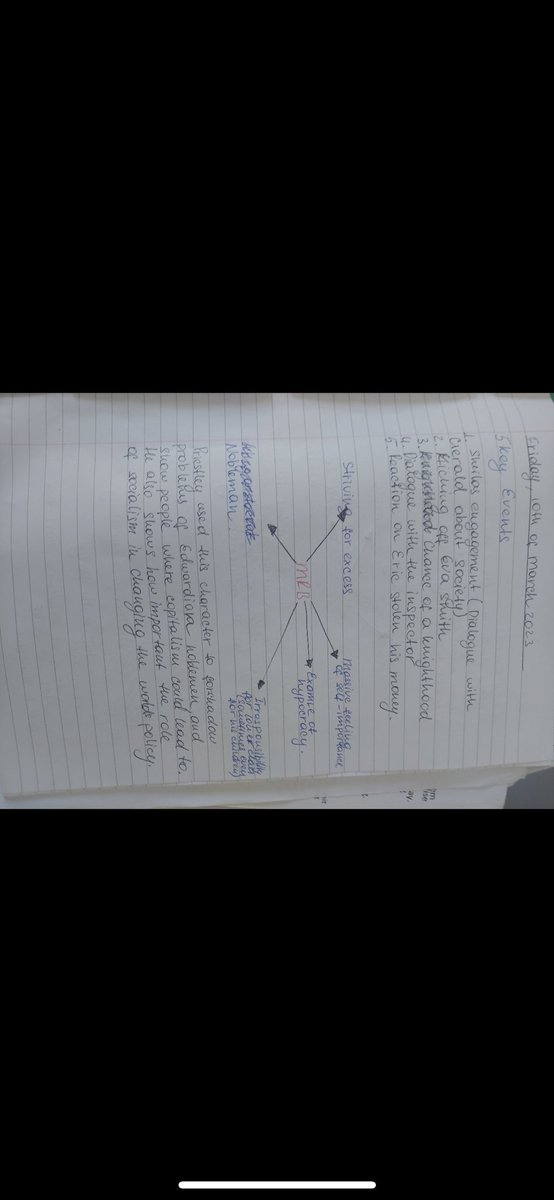 Friday, 10th of March 2023
5 key Events
1. Sheilas engagement (Dialogue with
Gerald about society)
2. Kicking off Eva Smith
3. Chance of a knighthood
4. Dialogue with the inspector
5. Reaction on Eric stolen his money.
Striving for excess
Massive feeling
of self-importance
MR B
Examle of
hypocracy.
Nobleman.
Irrasponsibility
for lower class
(sometimes even
for his children)
Priestley used this character to forshadow
problems of Edwardian noblemen, and
show people where capitalism could lead to.
He also shows how important the role
of socialism in changing the world policy.